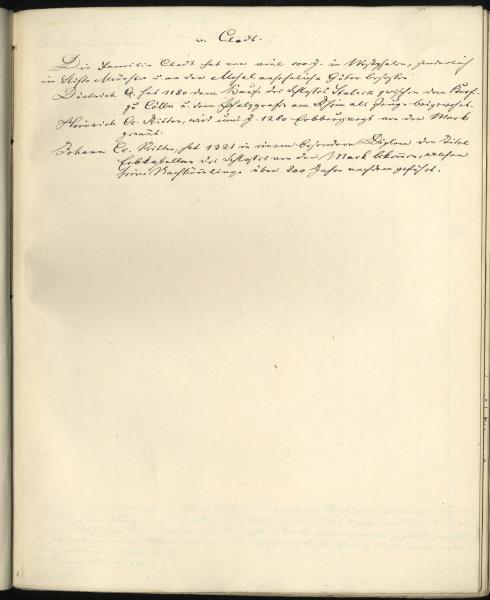 v. Clodt.
Die Familie Clodt hat vor viel 100 J. in Westphalen, sonderlich
im Stifte Münster u. an der Mosel ansehnliche Güter besessen
Dietrich C. hat 1180 dem Kaufe des Schlosses zwischen dem Churf.
zu Cölln u. dem Pfalzgrafen am Rhein als Zeuge beigewohnt.
Heinrich C. Ritter, wird ums J. 1280 Erbburgvogt an der Mark
genannt.
Johann C. Ritter, hat 1321 in einem besondern Diplom den Titel
Erbkastellan des Schlosses an der Mark bekommen, welchen
seine Nachkömmlinge über 200 Jahre nachdem geführt.